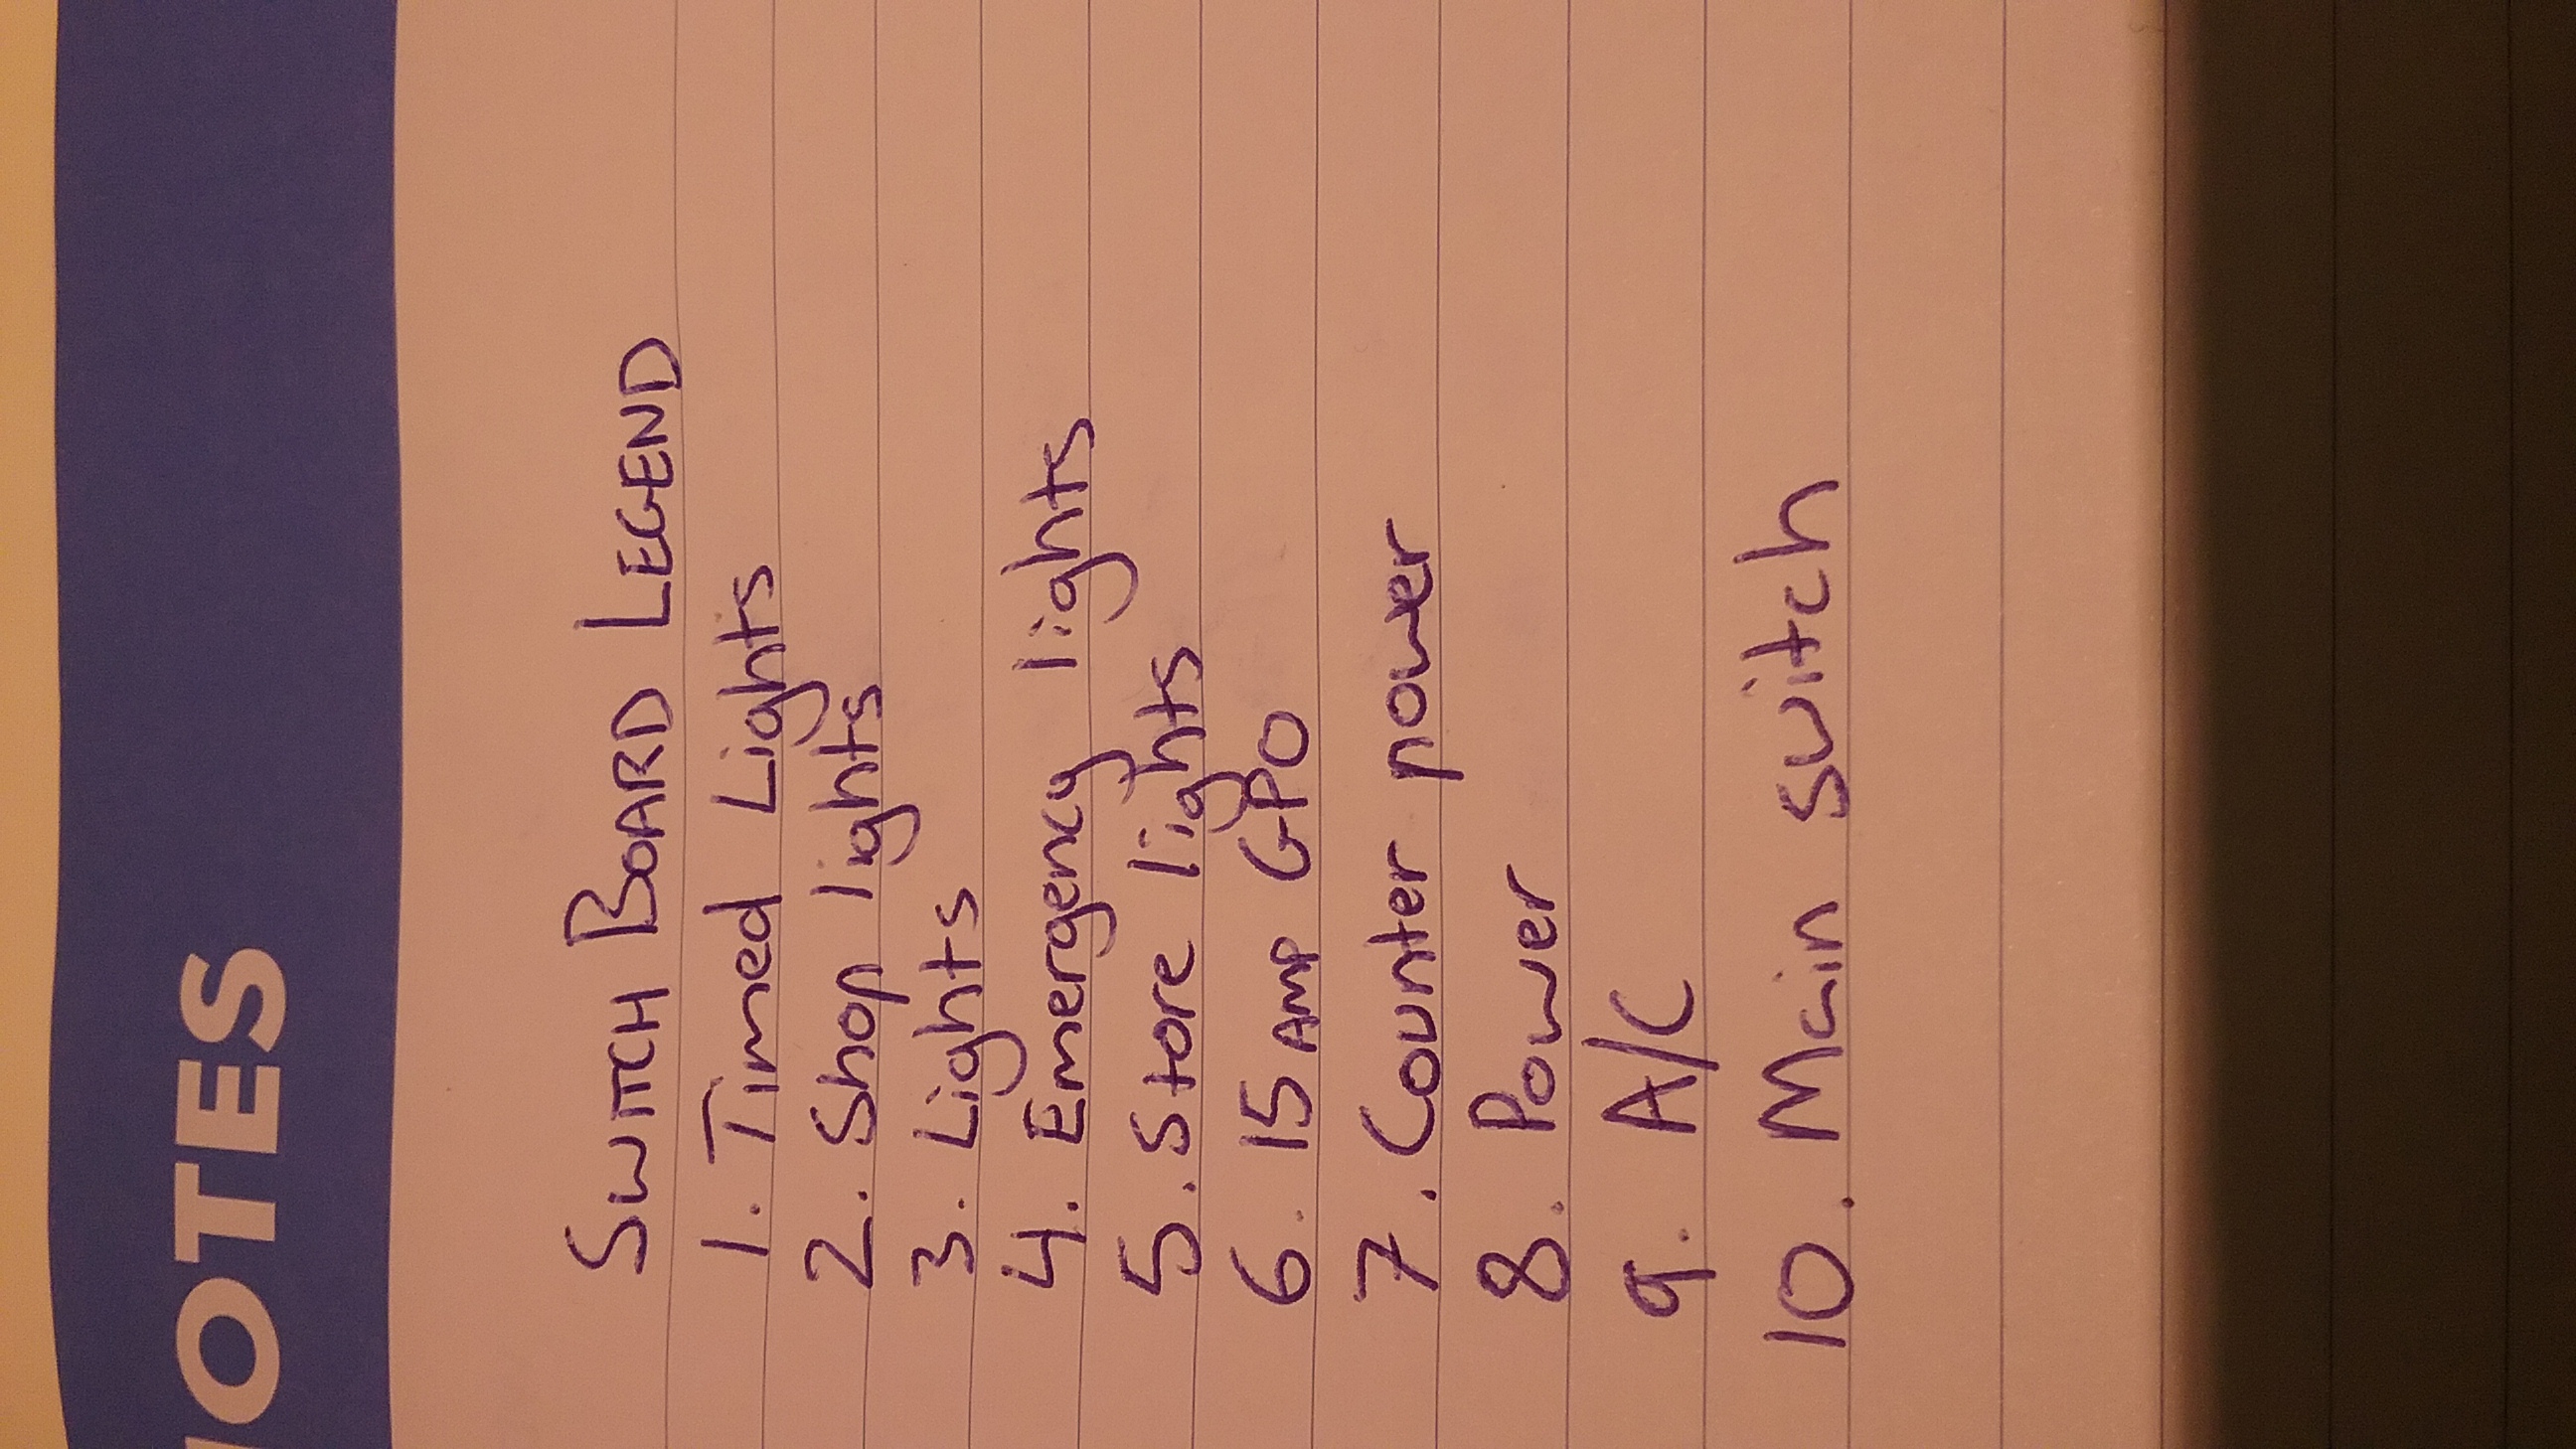 NOTES
SWITCH BOARD LEGEND
1. Timed Lights
2. Shop lights
3. Lights
4. Emergency lights
5. Store lights
6. 15 AMP GPO
7. Counter power
8. Power
9. A/C
10. Main switch